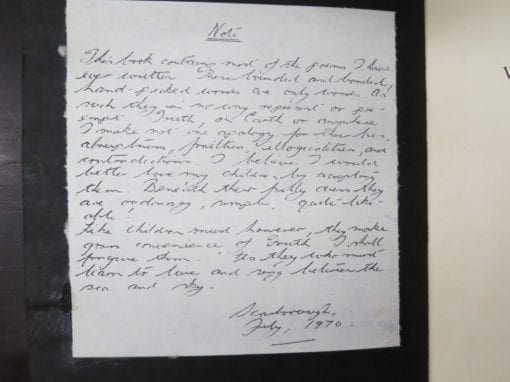 Note
This book contains most of the poems I have
ever written. These bounded and bonded,
hand-picked words are only words. As
such they in no way represent or pre-
empt Truth, on Earth or anywhere.
I make not one apology for their lies,
abruptness, frailties, illogicalities, and
contradictions. I believe I would
better love my children by accepting
them. Beneath their frilly dress they
are ordinary, simple, quite like-
able!
like children must however, they make
great convenience of Truth. I shall
forgive them. 'Tis they who must
learn to live and sing between the
sea and sky.
Scarborough,
July, 1970.